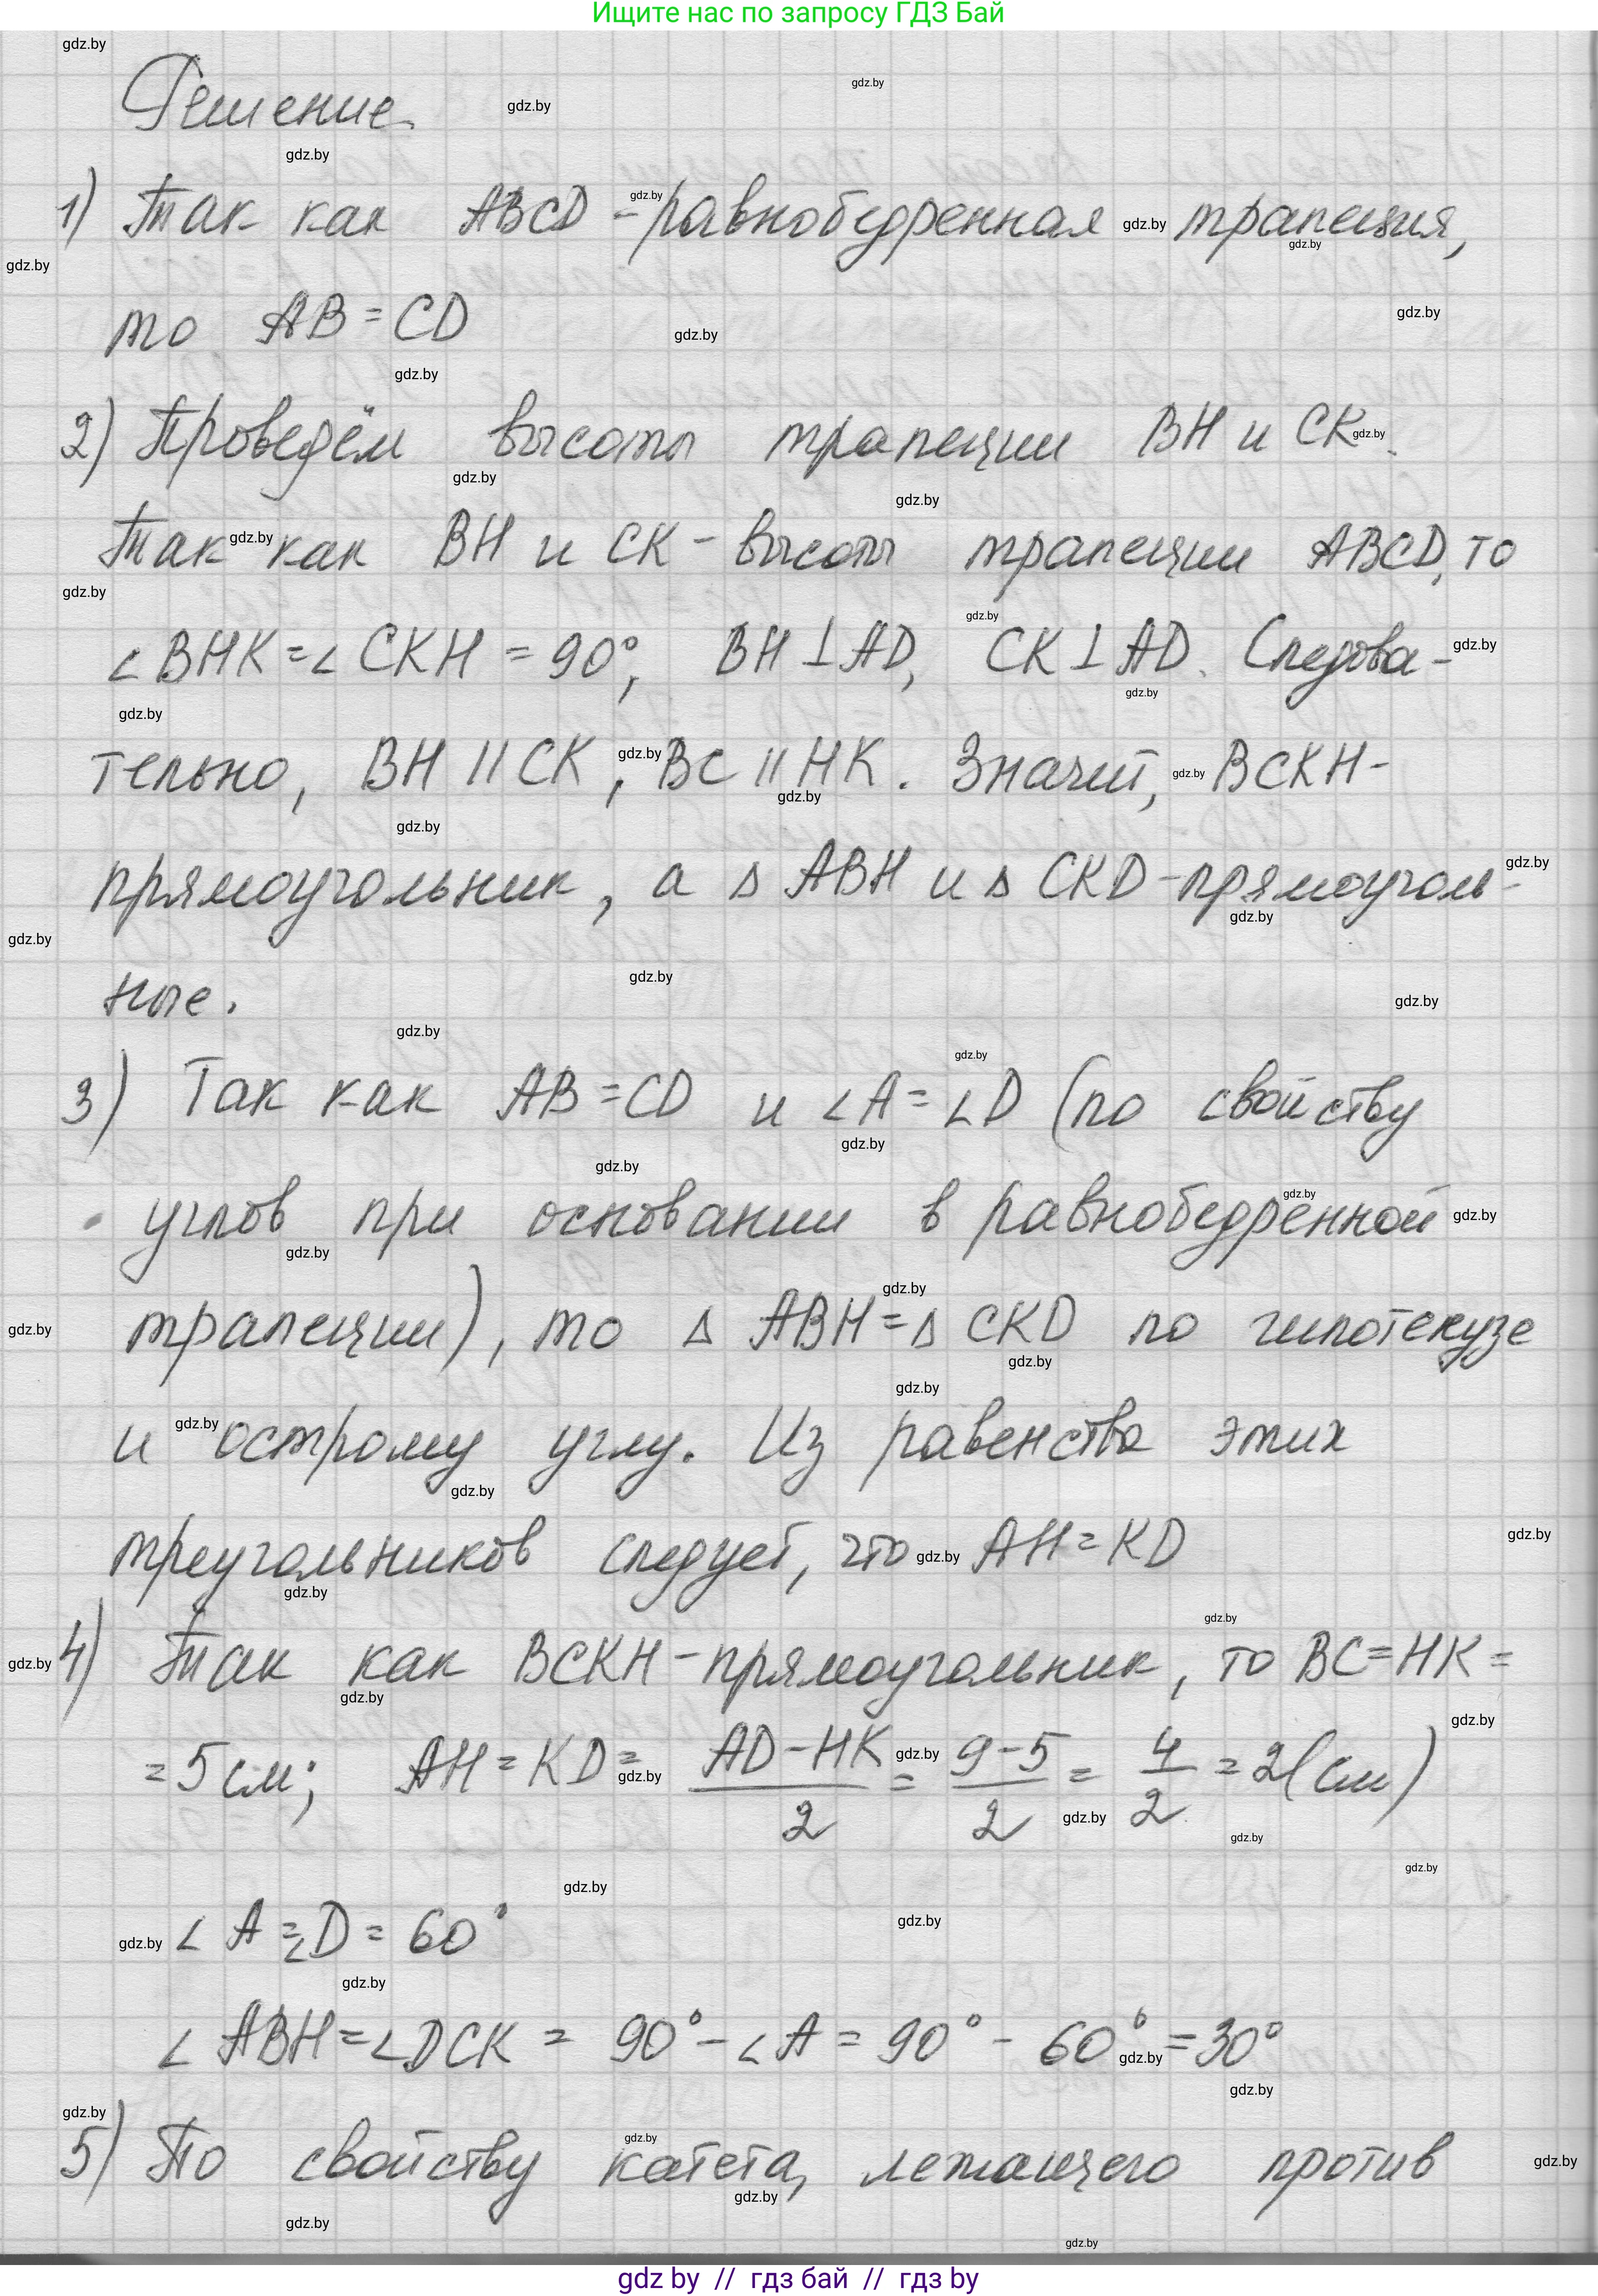 Ищите нас по запросу ГДЗ Бай
Решение.
1) Так как ABCD - равнобедренная трапеция,
то AB = CD
2) Проведём высоты трапеции BH и CK.
Так как BH и CK - высоты трапеции ABCD, то
∠BHK = ∠CKH = 90°, BH ⊥ AD, CK ⊥ AD. Следова-
тельно, BH || CK, BC || HK. Значит, BCKH -
прямоугольник, а △ ABH и △ CKD - прямоуголь-
ные.
3) Так как AB = CD и ∠A = ∠D (по свойству
углов при основании в равнобедренной
трапеции), то △ ABH = △ CKD по гипотенузе
и острому углу. Из равенства этих
треугольников следует, что AH = KD
4) Так как BCKH - прямоугольник, то BC = HK =
= 5 см; AH = KD = (AD - HK)/2 = (9 - 5)/2 = 4/2 = 2 (см)
∠A = ∠D = 60°
∠ABH = ∠DCK = 90° - ∠A = 90° - 60° = 30°
5) По свойству катета, лежащего против
gdz by // гдз бай // гдз by